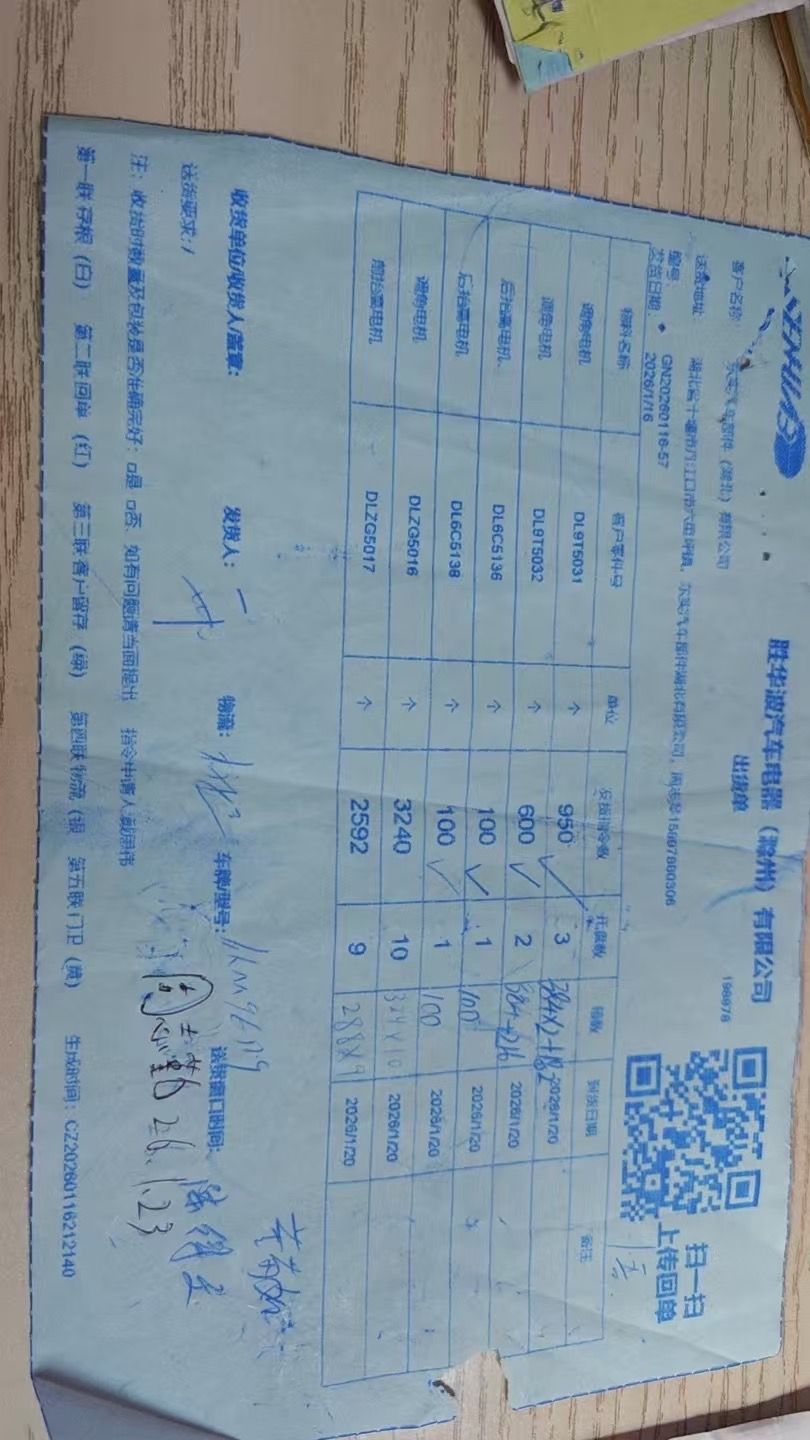 胜华波汽车电器（滁州）有限公司
出货单
198976
扫一扫
上传回单
客户名称： 东实汽车部件（湖北）有限公司
送货地址： 湖北省十堰市丹江口市六里坪镇，东实汽车部件湖北有限公司，周志攀15897800306
编号： GN20260116-57
发货日期： 2026/1/16
物料名称 客户零件号 单位 发货指令数 托盘数 箱数 到货日期 备注
调角电机 DL9T5031 个 950 3 2026/1/20
调角电机 DL9T5032 个 600 2 384+216 2026/1/20
后抬高电机 DL6C5136 个 100 1 100 2026/1/20
后抬高电机 DL6C5138 个 100 1 100 2026/1/20
调角电机 DLZG5016 个 3240 10 324×10 2026/1/20
前抬高电机 DLZG5017 个 2592 9 288×9 2026/1/20
收货单位/收货人/盖章： 发货人： 物流： 车牌/型号： 送货窗口时间：
送货要求：/
26.1.23
注：收货时数量及包装是否准确完好：□是 □否，如有问题请当面提出 指令申请人
第一联 存根（白） 第二联 回单（红） 第三联 客户留存（绿） 第四联 物流（蓝 第五联 门卫（黄） 生成时间：CZ20260116212140